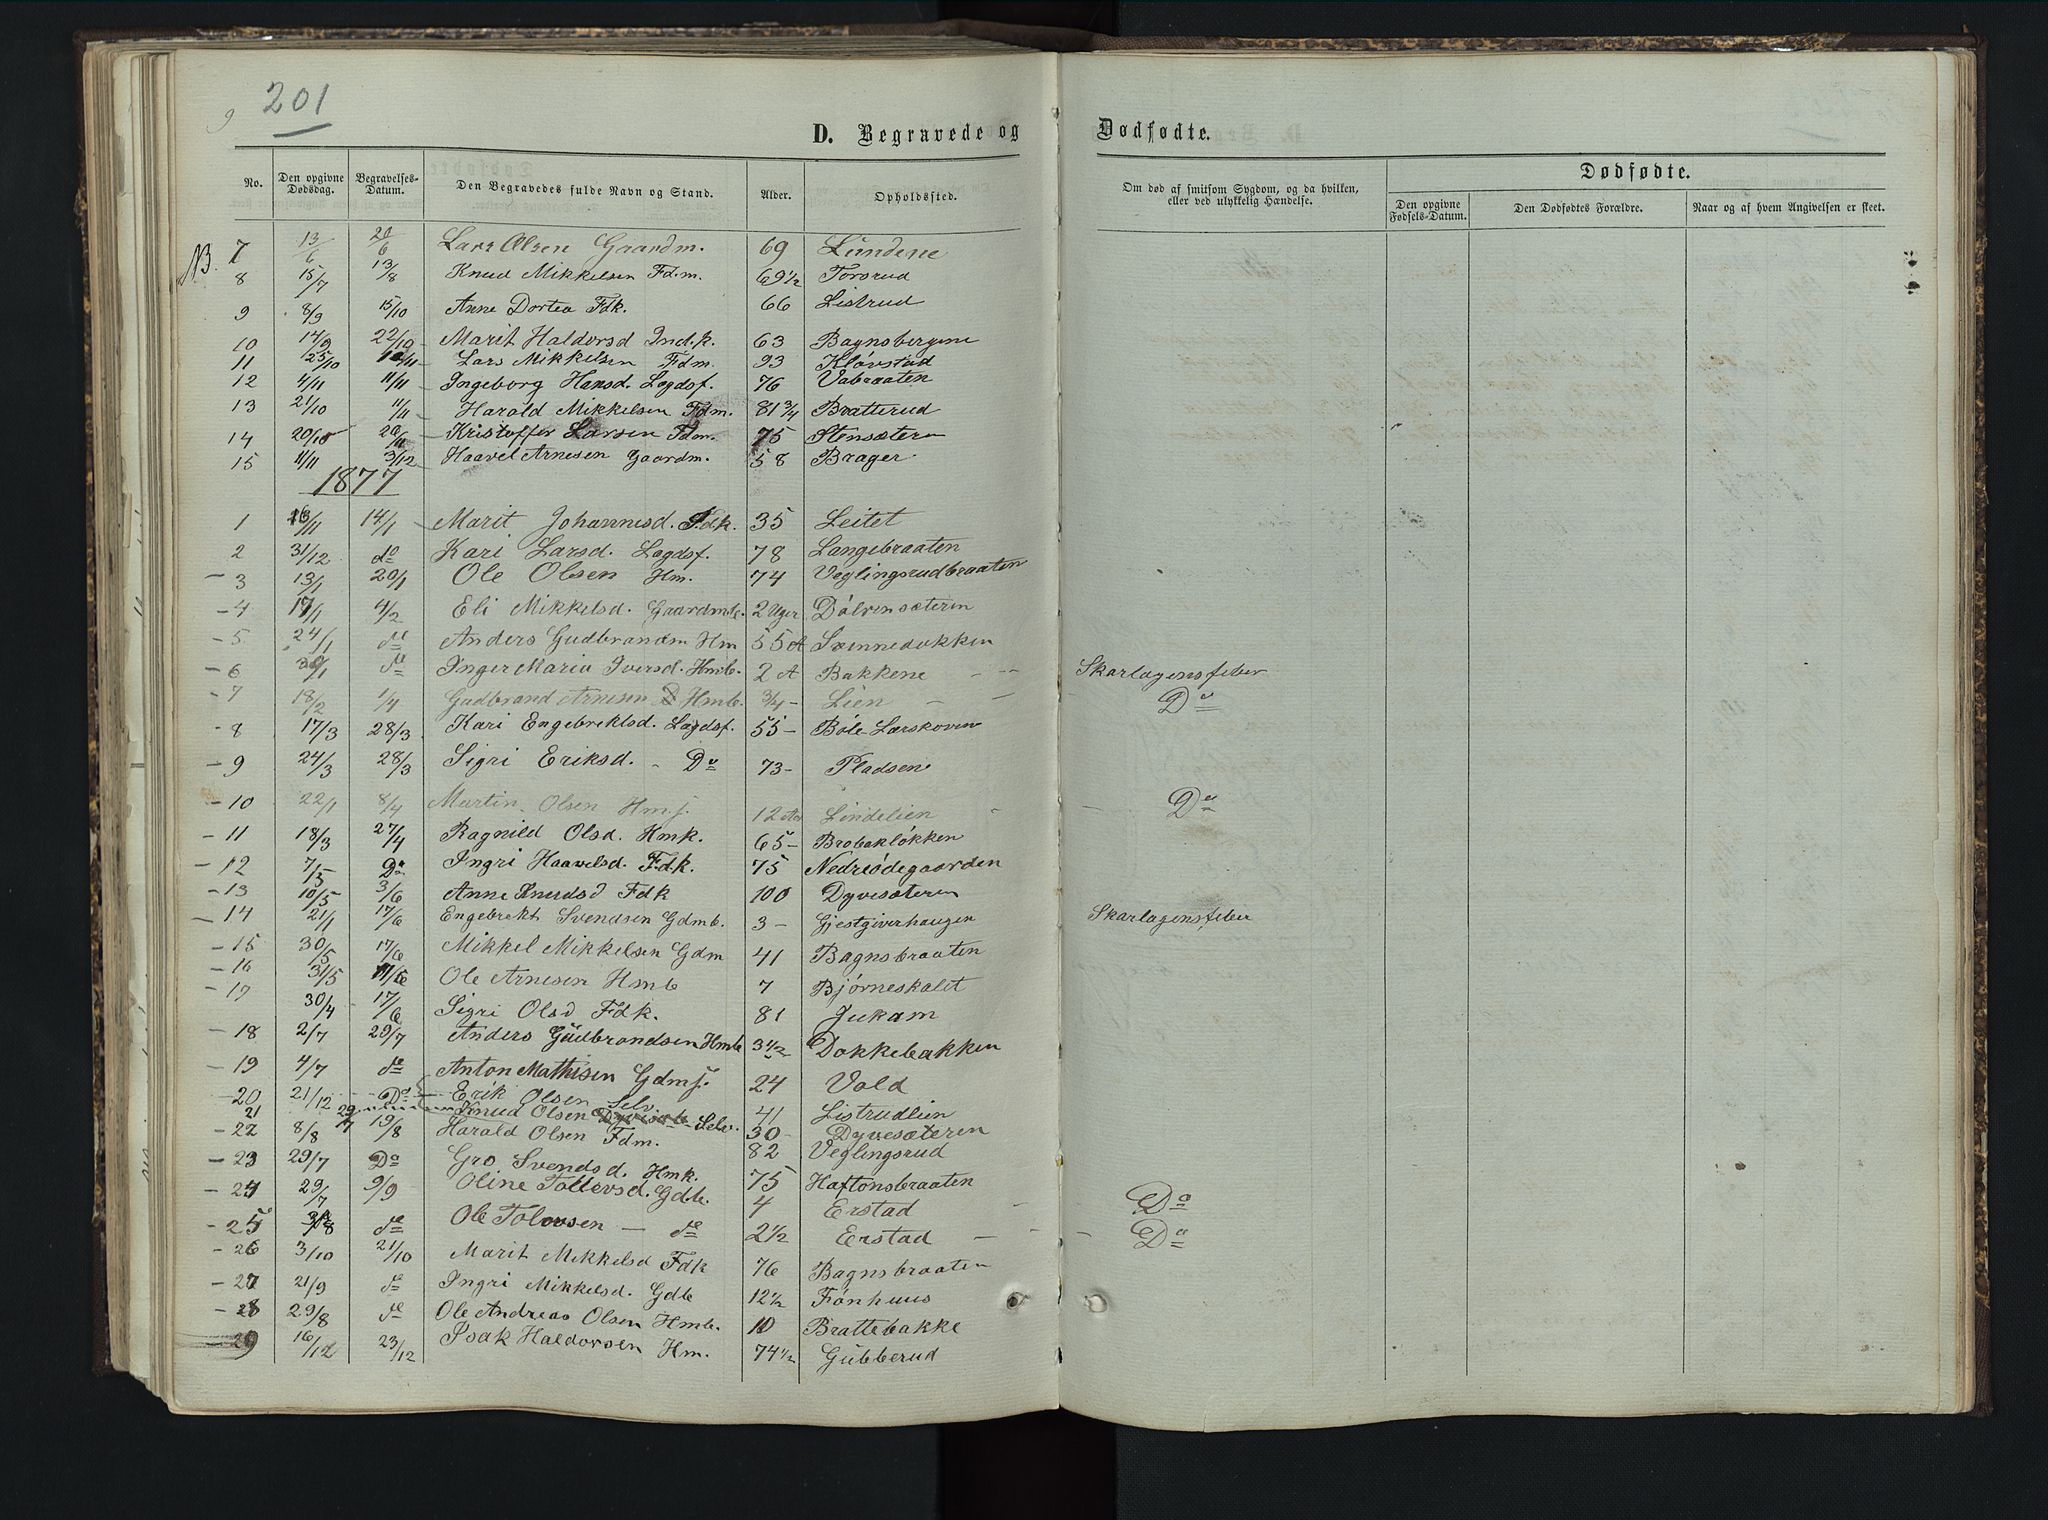 201
D. Begravede og Dødfødte.
No. Den opgivne Dødsdag. Begravelses-Datum. Den Begravedes fulde Navn og Stand. Alder. Opholdssted. Om død af smitsom Sygdom, og da hvilken, eller ved ulykkelig Hændelse. Dødfødte.
Den opgivne Fødsels-Datum. Den Dødfødtes Forældre. Naar og af hvem Angivelsen er skeet.
NB. 7 13/6 20/6 Lars Olsen Gaardm. 69 Lundene
8 15/7 13/8 Knud Mikkelsen Fdm. 69 1/2 Torsrud
9 8/9 15/10 Anne Dortea Fdk. 66 Listrud
10 14/9 22/10 Marit Haldorsd Indk. 63 Bagnsbergene
11 25/10 Lars Mikkelsen Fdm. 93 Kløvstad
12 4/11 11/11 Ingeborg Hansd. Lægdsf. 76 Vabraaten
13 21/10 11/11 Harald Mikkelsen Fdm. 81 3/4 Bratterud
14 20/10 26/11 Kristoffer Larsen Fdm. 75 Stensætern
15 11/11 3/12 Haavel Arnesen Gaardm. 58 Brager
1877
1 14/1 Marit Johannesd. Fdk. 35 Leitet
2 31/12 do Kari Larsd. Lægdsf. 78 Langebraaten
3 13/1 20/1 Ole Olsen Hm. 74 Veglingsrudbraaten
4 17/1 4/2 Eli Mikkelsd. Gaardmb. 2 Uger Dølvensætern
5 24/1 do Anders Gudbrandsn Hm 55 A Sønnedokken
6 do Inger Maria Iversd. Hmb. 2 A Bakkene Skarlagensfeber
7 18/2 1/4 Gudbrand Arnesen Hmb. 3/4 Lien Do
8 17/3 28/3 Kari Engebrektsd. Lægdsf. 55 Bøle Lærskoven
9 24/3 28/3 Sigri Eriksd. Do 73 Pladsen
10 22/1 8/4 Martin Olsen Hmf. 12 Aar Lindelien Do
11 18/3 27/4 Ragnild Olsd. Hmk. 65 Brobakløkken
12 7/5 Do Ingri Haavelsd. Fdk. 75 Nedreødegaarden
13 10/5 3/6 Anne Knudsd Fdk 100 Dyvesæteren
14 21/1 17/6 Engebrekt Svendsen Gdmb. 3 Gjestgiverhaugen Skarlagensfeber
15 30/5 17/6 Mikkel Mikkelsen Gdm 41 Bagnsbraaten
16 31/5 Ole Arnesen Hmb 7 Bjørneskalet
17 30/4 17/6 Sigri Olsd Fdk. 81 Jukam
18 2/7 29/7 Anders Gudbrandsen Hmb 3 1/2 Dokkebakken
19 4/7 do Anton Mathisen Gdmf. 24 Vold
20 21/12 Do Erik Olsen Selv. 41 Listrudlien
21 29/7 Knud Olsen Selv. 30 Dyvesæteren
22 8/8 19/8 Harald Olsen Fdm. 82 Veglingsrud
23 29/7 Do Gro Svendsd. Hmk. 75 Haftonsbraaten
24 29/7 9/9 Oline Tollevsd. Gdb. 4 Erstad Do
25 do Ole Tolovsen do 2 1/2 Erstad Do
26 3/10 21/10 Marit Mikkelsd Fdk 76 Bagnsbraaten
27 21/9 do Ingri Mikkelsd. Gdb 12 1/2 Fønhuus
28 29/8 do Ole Andreas Olsen Hmb. 10 Brattebakke
29 16/12 23/12 Isak Haldorsen Hm. 74 1/2 Gubberud